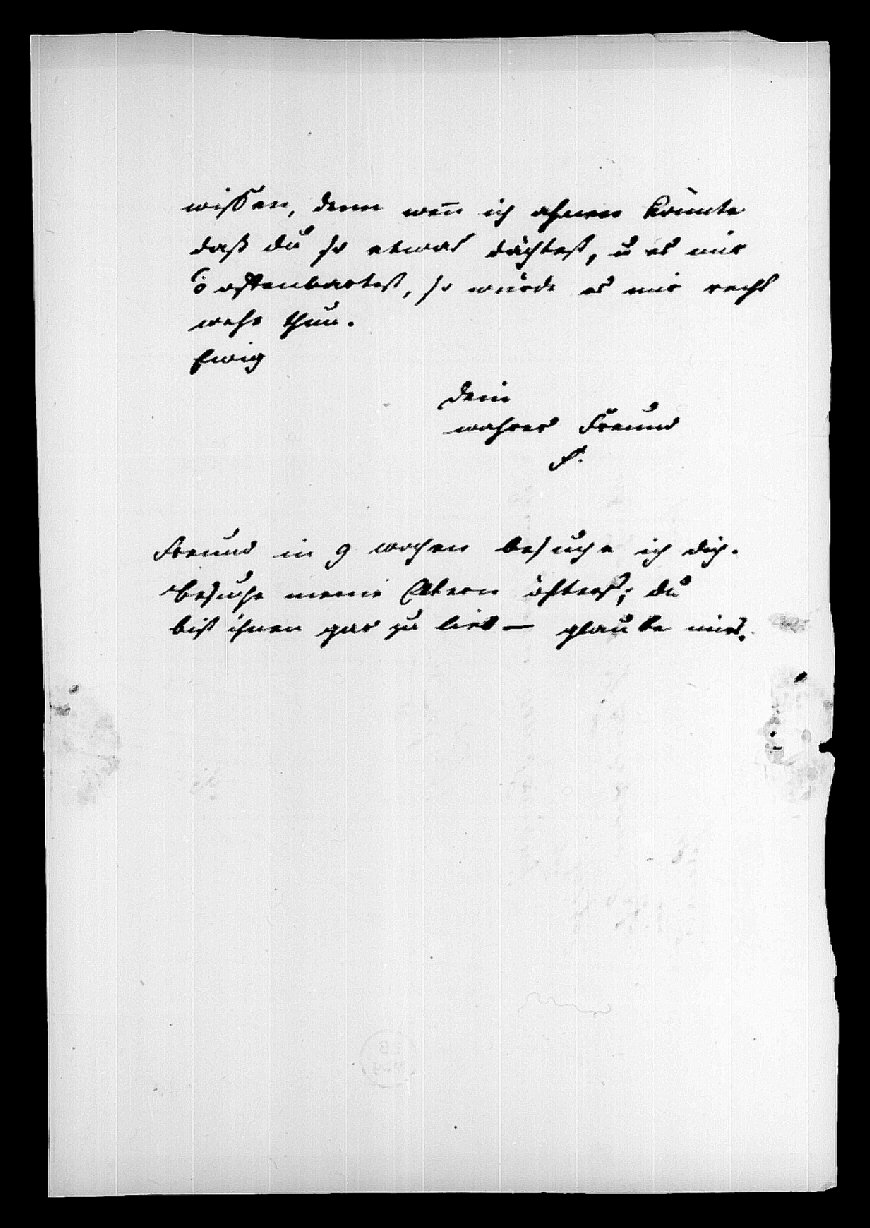 wissen, denn weñ ich ahnen könnte
daß du so etwas dächtest, u es mir
offenbartest, so würde es mir recht
wehe thun.
Ewig
dein
wahrer Freund
F.
Freund in 9 wochen besuche ich dich.
Besuche meine Eltern öfters; du
bist ihnen gar zu lieb — glaube mirs.